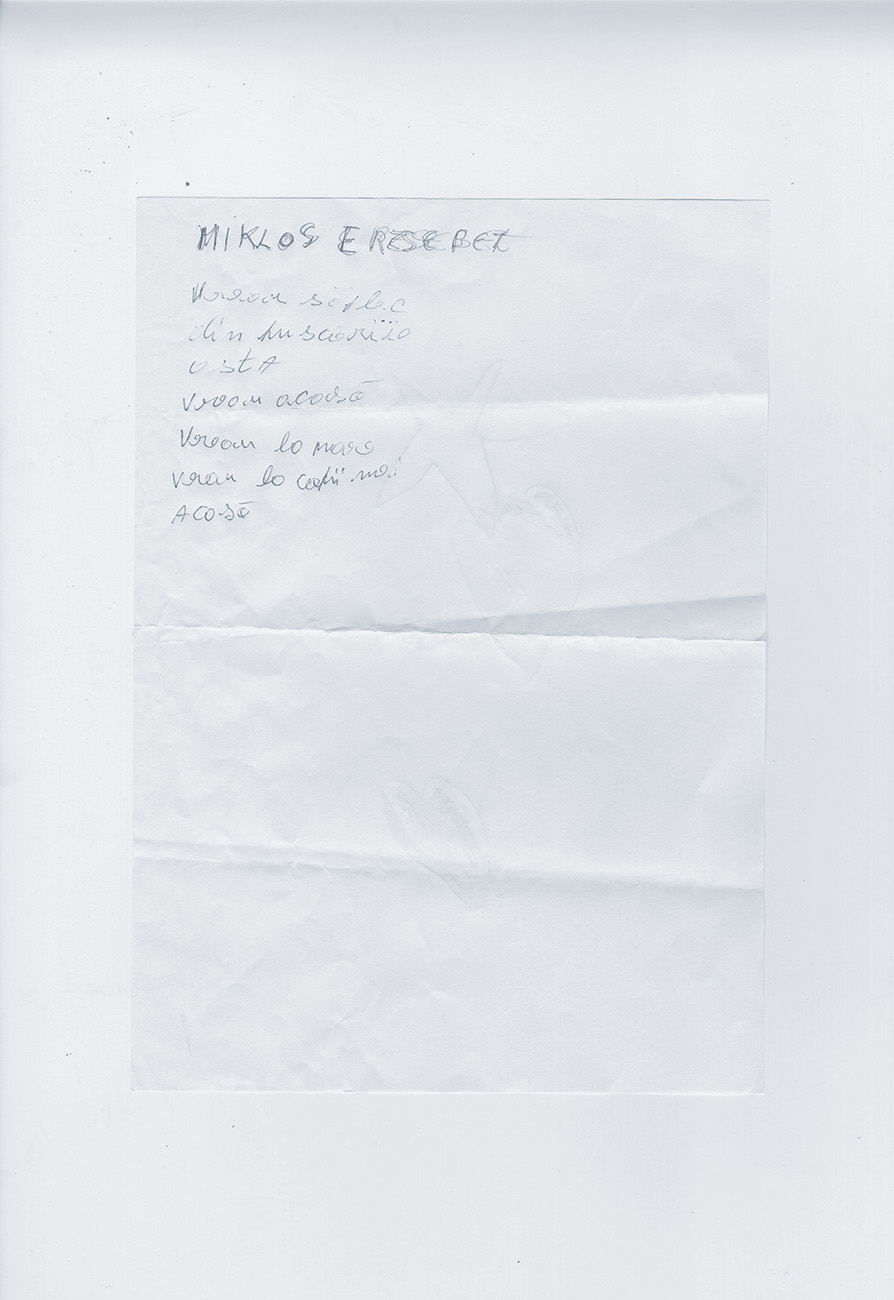 MIKLOS ERZSEBET
Vreau să plec
din puscariia
astA
Vreau acasă
Vreau la mare
vrau la copii mei
Acasă